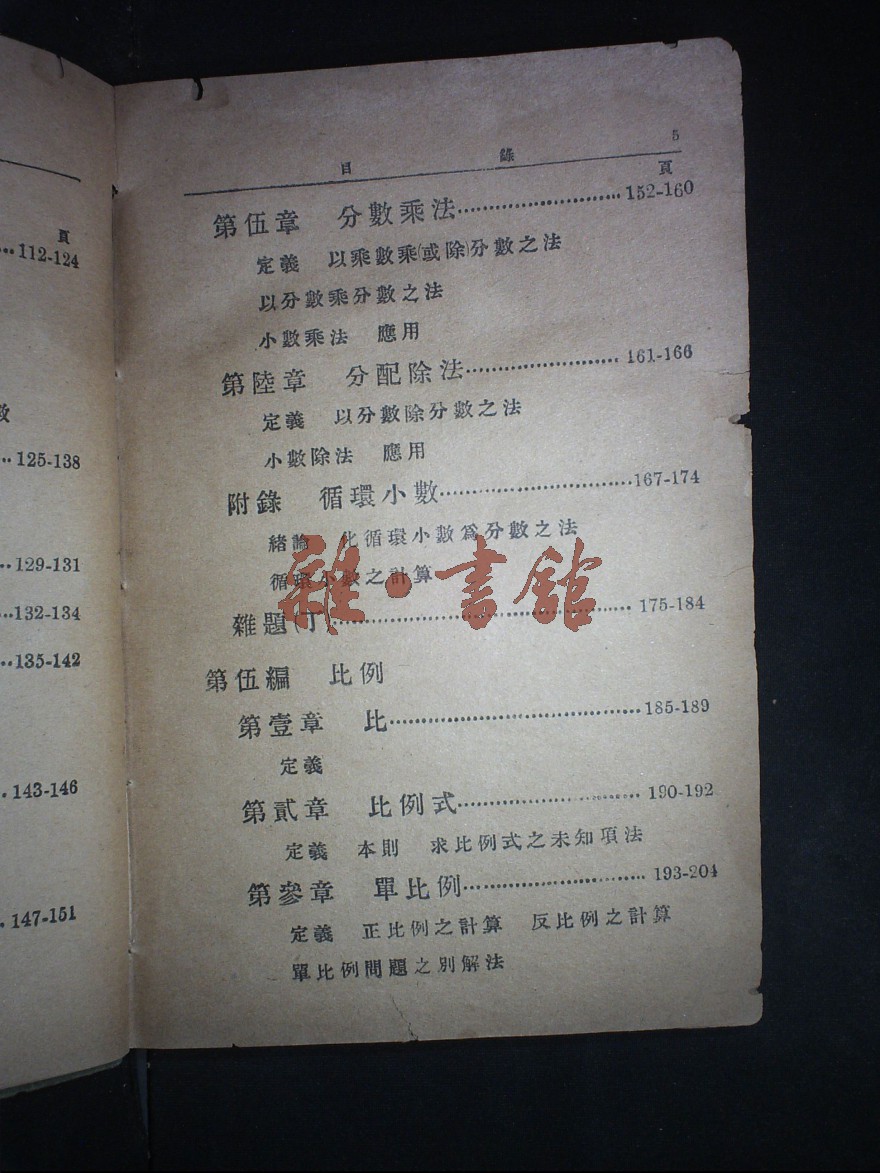 頁
112-124
數
125-138
129-131
132-134
135-142
143-146
147-151
目 錄 5
頁
第伍章 分數乘法 152-160
定義 以乘數乘(或除)分數之法
以分數乘分數之法
小數乘法 應用
第陸章 分配除法 161-166
定義 以分數除分數之法
小數除法 應用
附錄 循環小數 167-174
緒論 化循環小數爲分數之法
循環小數之計算
雜題(丁) 175-184
第伍編 比例
第壹章 比 185-189
定義
第貳章 比例式 190-192
定義 本則 求比例式之未知項法
第參章 單比例 193-204
定義 正比例之計算 反比例之計算
單比例問題之別解法
雜·書館